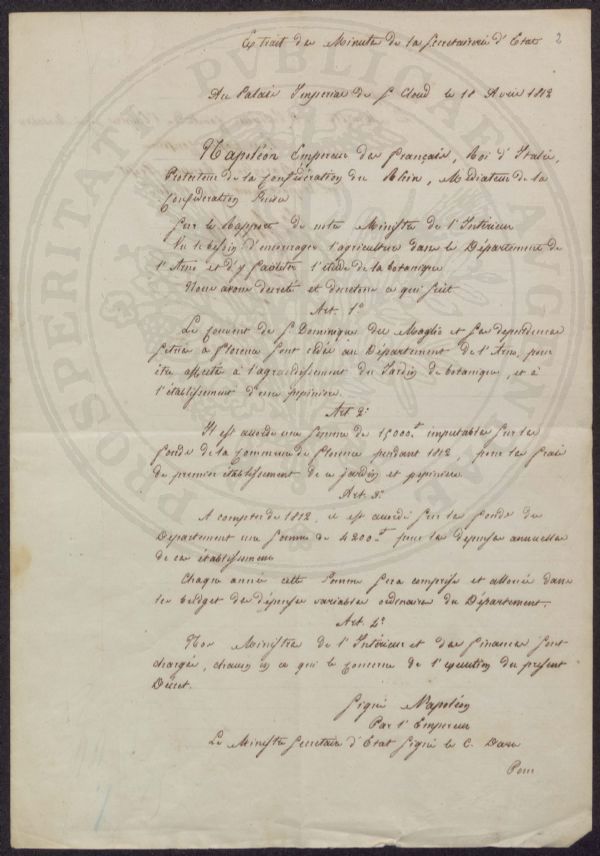 Extrait des Minutes de la Secretairerie d'Etat 2
Au Palais Imperial de St Cloud le 18 Avril 1812
Napoléon Empereur des français, Roi d'Italie,
Protecteur de la Confédération du Rhin, Médiateur de la
Confédération Suisse
Sur le Rapport de notre Ministre de l'Intérieur
Vu le besoin d'encourager l'agriculture dans le Département de
l'Arno et d'y faciliter l'étude de la botanique
Nous avons decreté et decretons ce qui suit
Art. 1o
Le Couvent de St Dominique del Maglio et ses dependences
situés à florence sont cédés au Département de l'Arno, pour
être affectés à l'agrandissement du Jardin de botanique, et à
l'établissement d'une pepiniere.
Art 2o
Il est accordé une somme de 15000 imputable sur les
fonds de la Commune de florence pendant 1812, pour les frais
de premier établissement de ce jardin et pepiniere.
Art. 3o
A compter de 1812, il est accordé sur les fonds du
Département une somme de 4200 pour les depenses annuelles
de ces établissemens
Chaque année cette somme sera comprise et allouée dans
les budget des dépenses variables ordinaires du Département.
Art. 4o
Nos Ministres de l'Intérieur et des finances sont
chargés, chacun en ce qui le concerne de l'execution du present
Décret.
Signé Napoléon
Par l'Empereur
Le Ministre Secretaire d'Etat Signé le C. Daru
Pour
PROSPERITATI PUBLICAE AUGENDAE